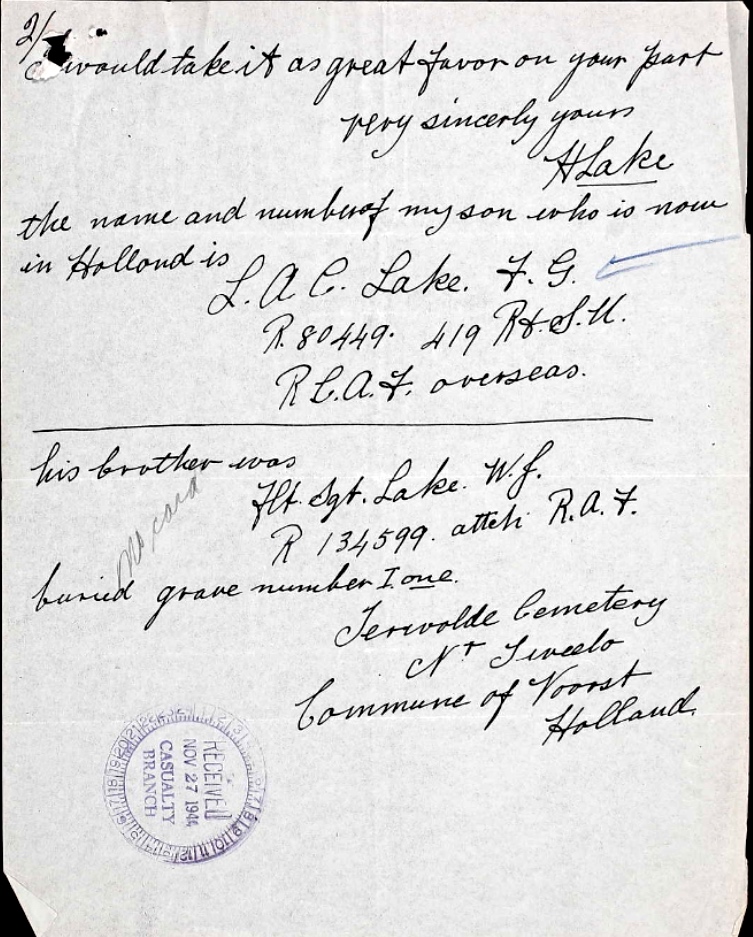 2/
I would take it as great favor on your part
very sincerly yours
H Lake
the name and number of my son who is now
in Holland is
L.A.C. Lake. F. G.
R. 80449. 419 R.&.S.U.
R.C.A.F. overseas.
his brother was
Flt. Sgt. Lake. W. J.
R 134599. attch R.A.F.
no card
buried grave number I one.
Terwolde Cemetery
Nr Twello
Commune of Voorst
Holland.
RECEIVED
NOV 27 1944
CASUALTY
BRANCH